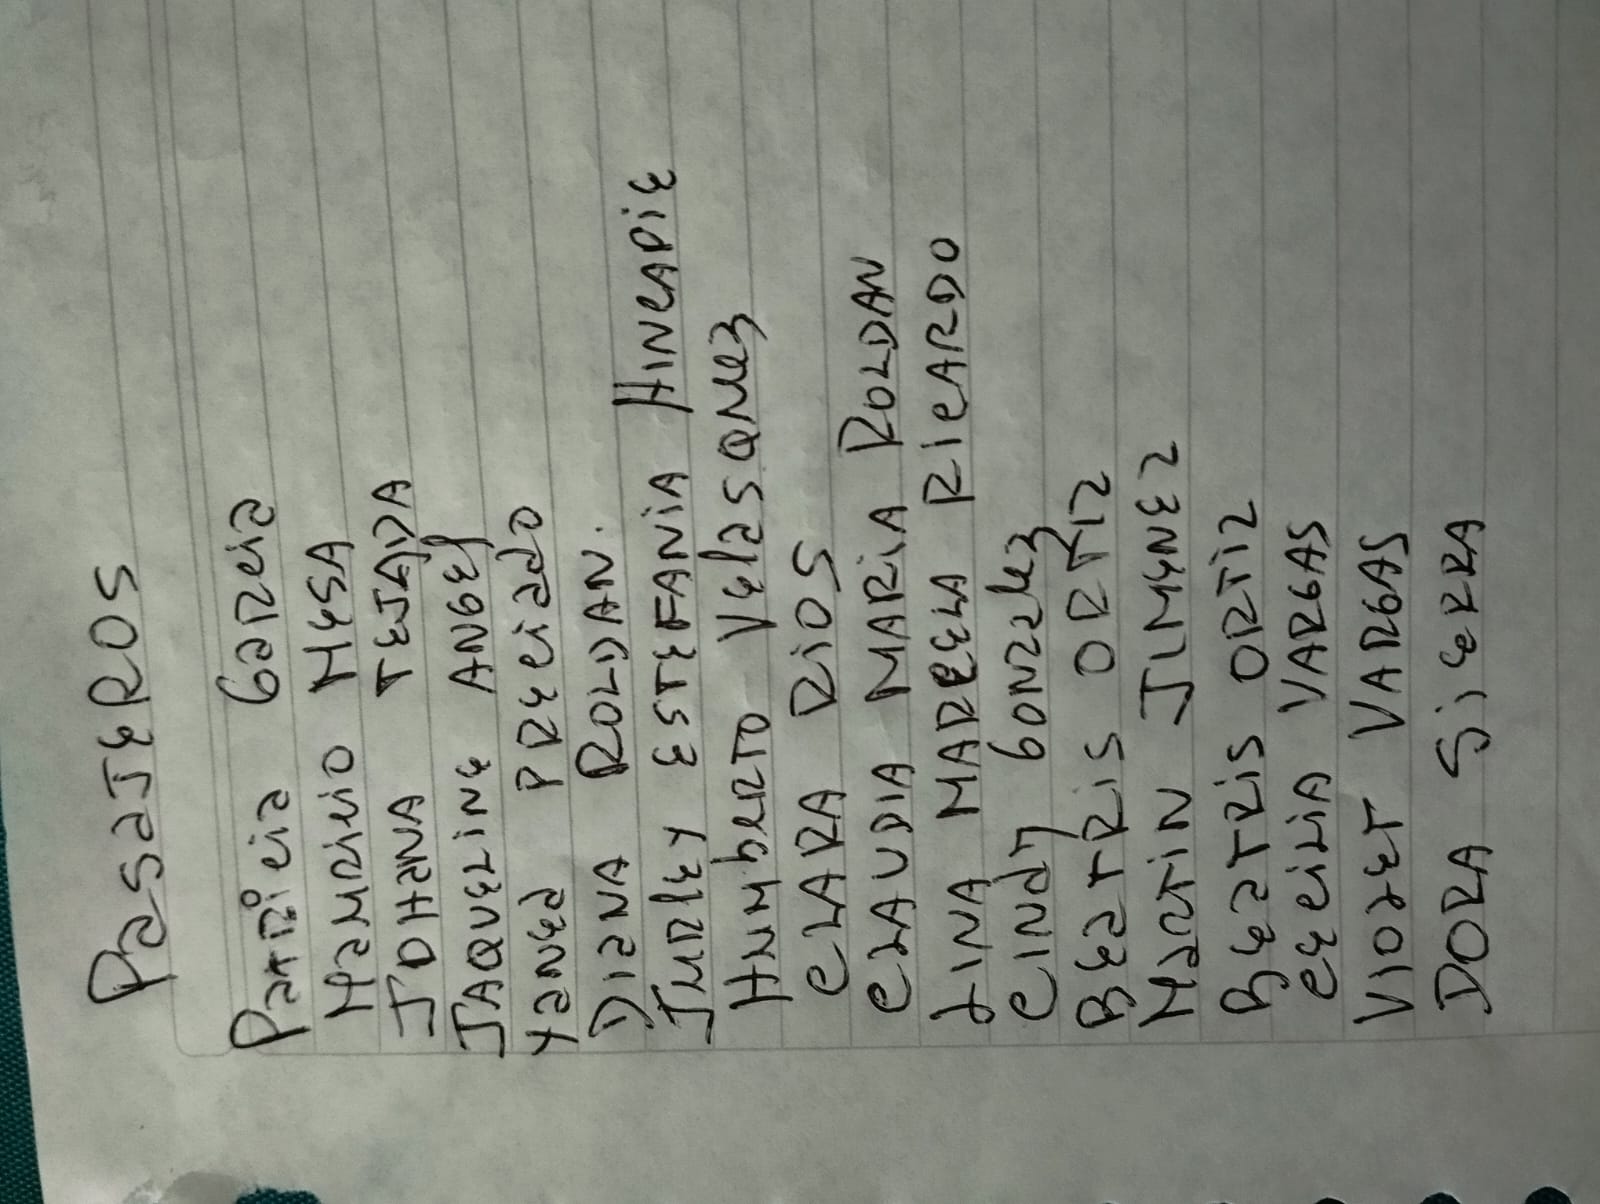 PasaJeROS
PaTRicia GaRcia
MauRicio MesA
JOHANA TEJADA
JAQUELINE ANGEl
YaNeD PRECiaDO
DiaNA ROLDAN.
JuRleY ESTEFANiA HiNCAPiE
HumbeRTO VElasQuez
CLARA RiOS
CLAUDIA MARiA ROLDAN
LINA MARCELA RiCARDO
CINdy GONZalez
BeaTRiS ORTIZ
MARTiN JIMENEZ
BeaTRiS ORTiZ
CECiLIA VARGAS
VIOLET VARGAS
DORA SiERRA